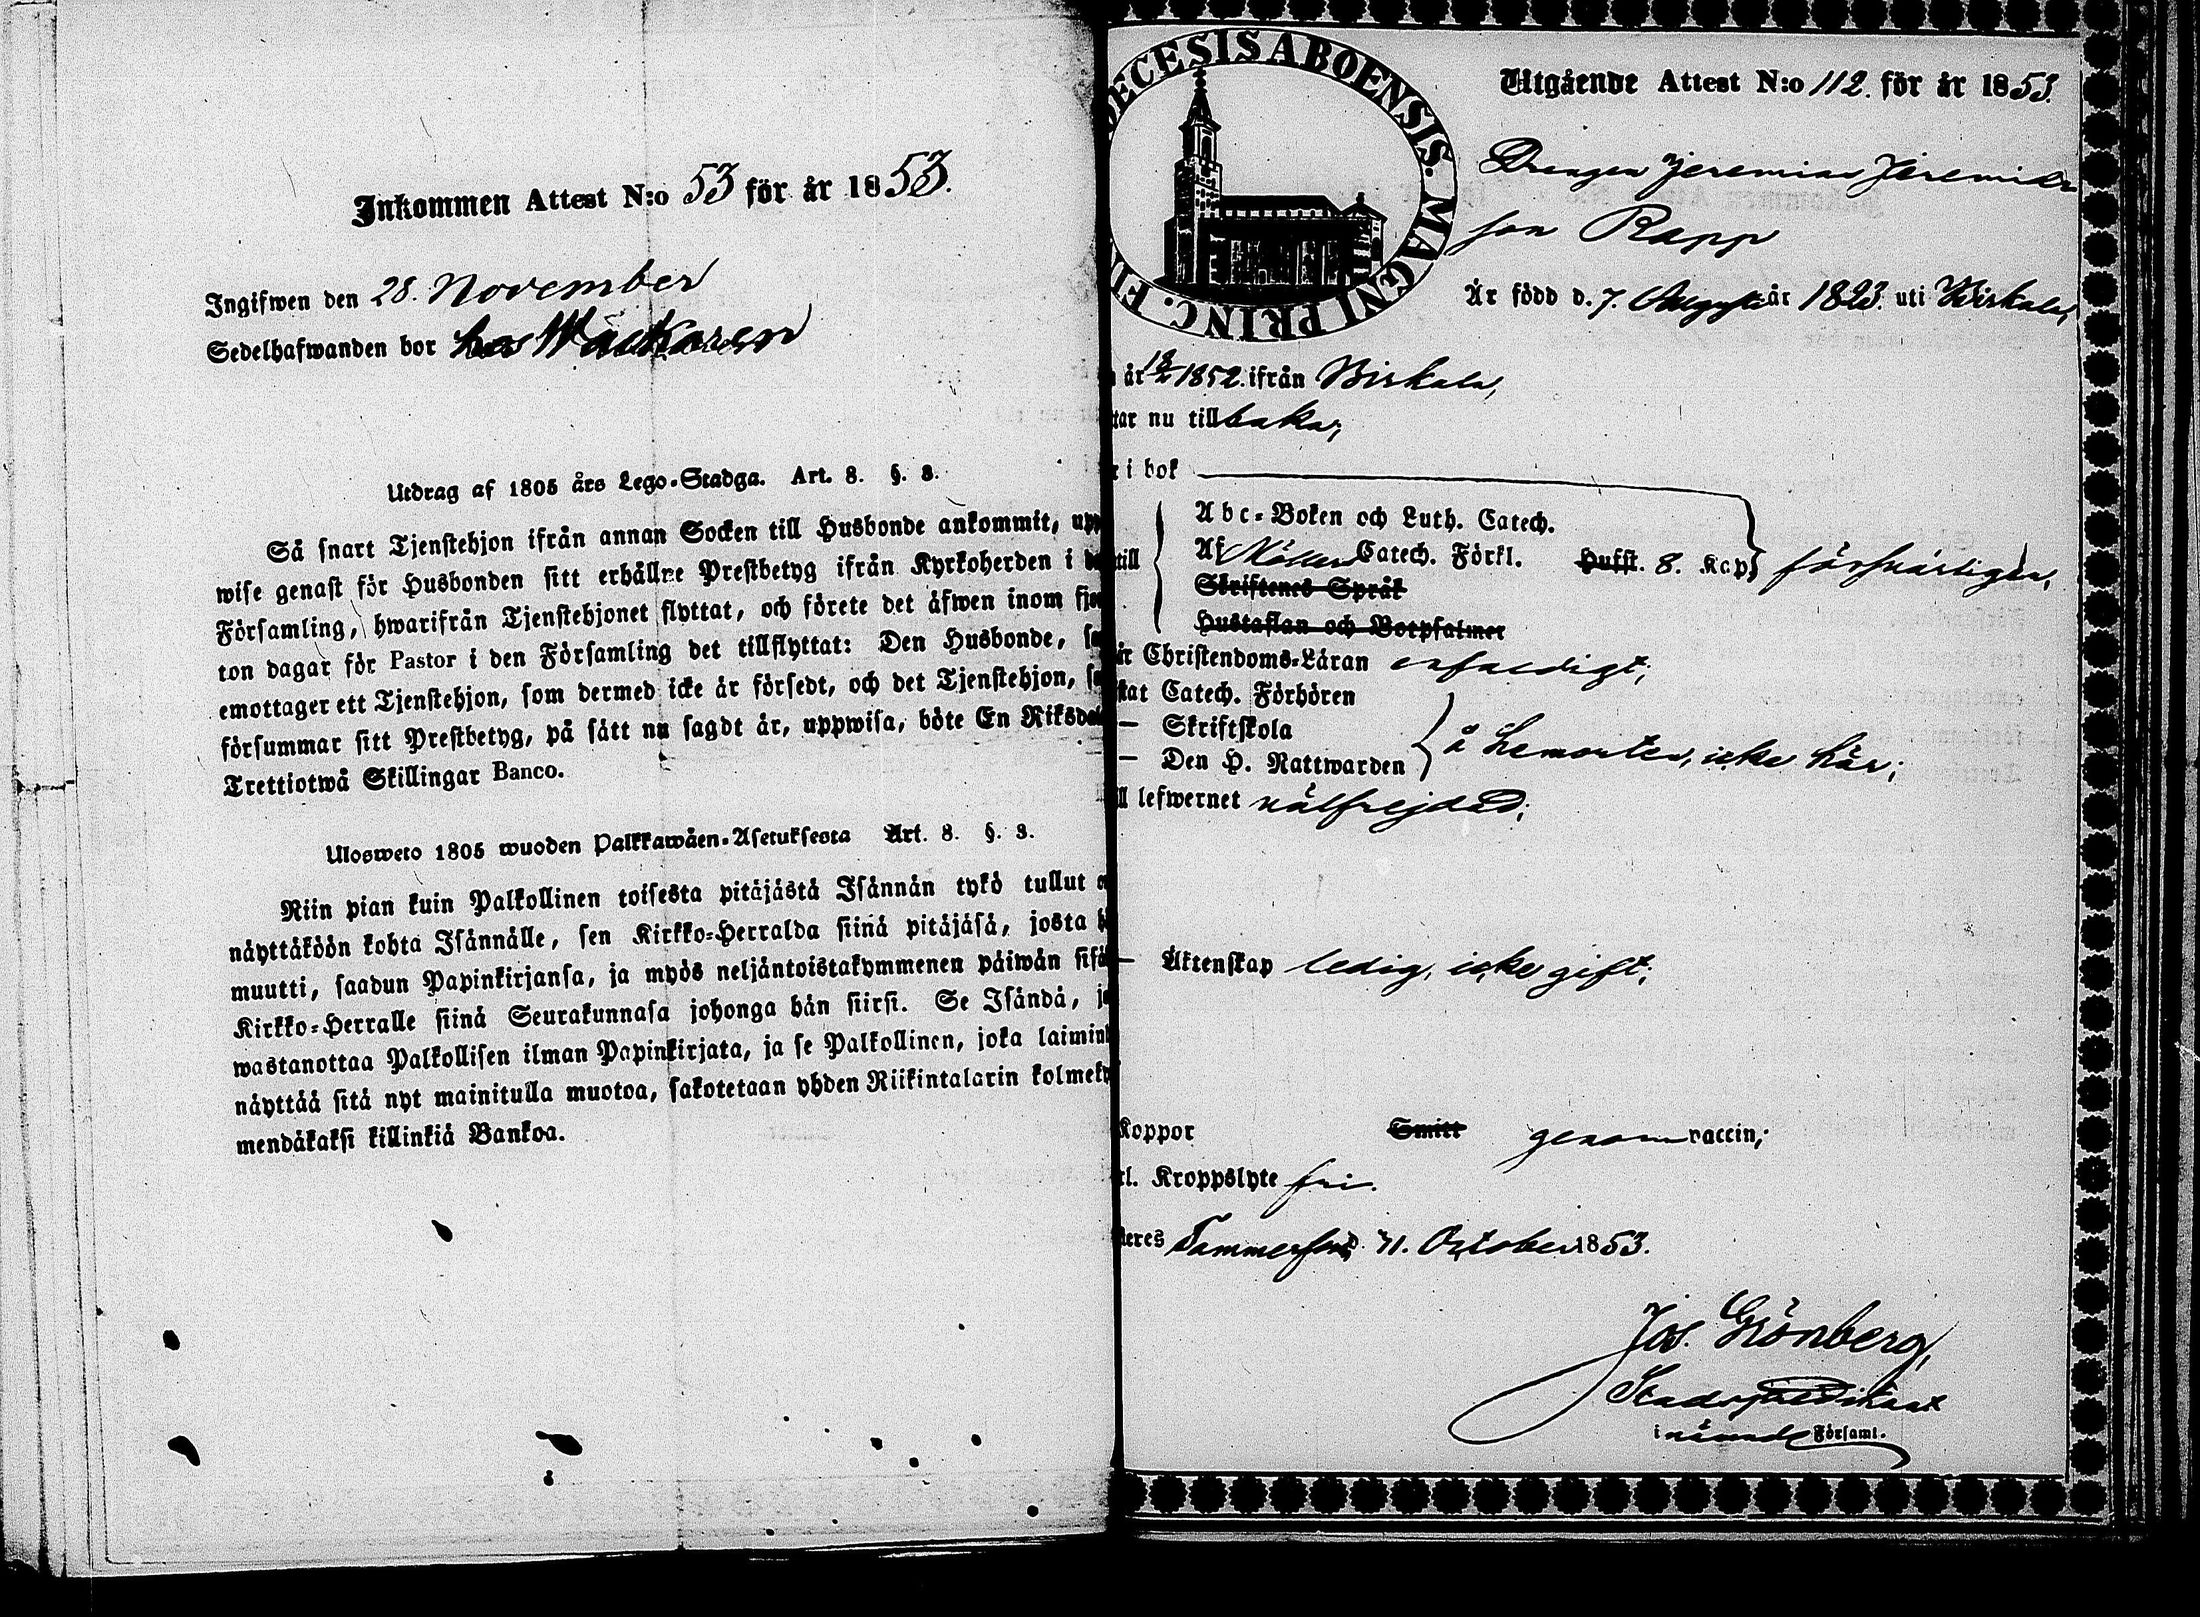 Inkommen Attest N:o 53 för år 1853.
Ingifwen den 28. November
Sedelhafwanden bor hos
Utdrag af 1805 års Lego-Stadga. Art. 8. §. 3.
Så snart Tjenstehjon ifrån annan Socken till Husbonde ankommit, upp
wise genast för Husbonden sitt erhållne Prestbetyg ifrån Kyrkoherden i
Församling, hwarifrån Tjenstehjonet flyttat, och förete det äfwen inom fjor
ton dagar för Pastor i den Församling det tillflyttat: Den Husbonde,
emottager ett Tjenstehjon, som dermed icke är försedt, och det Tjenstehjon,
försummar sitt Prestbetyg, på sätt nu sagdt är, uppwisa, böte En Riksdal
Trettiotwå Skillingar Banco.
Ulosweto 1805 wuoden Palkkawäen-Asetuksesta Art. 8. §. 3.
Niin pian kuin Palkollinen toisesta pitäjästä Isännän tykö tullut
näyttäköön kohta Isännälle, sen Kirkko-Herralda siinä pitäjäsä, josta
muutti, saadun Papinkirjansa, ja myös neljäntoistakymmenen päiwän sisä
Kirkko-Herralle siinä Seurakunnasa johonga hän siirsi. Se Isändä, jo
wastanottaa Palkollisen ilman Papinkirjata, ja se Palkollinen, joka laimin
näyttää sitä nyt mainitulla muotoa, sakotetaan yhden Riikintalarin kolmeky
mendäkaksi killinkiä Bankoa.
DECESIS ABOENSIS. MAGNI PRINC. FI
Utgående Attest N:o 112. för år 1853.
Drengen Jeremias Jeremias
son Rapp
Är född d. 7. Augusti år 1823. uti Birkala,
år 1852. ifrån Birkala,
tar nu tillbaka;
i bok
till
Abc-Boken och Luth. Catech.
Af Möllers Catech. Förkl. Husst. 8. Kap. försvarligen,
Skriftenes Språk
Hustaflan och Botpsalmer
är Christendoms-Läran enfaldigt;
stat Catech. Förhören
— Skriftskola
— Den H. Nattwarden å hemorten, icke här;
ll lefwernet välfrejdad;
— Äktenskap ledig, icke gift;
Koppor Smitt genom vaccin;
rl. Kroppslyte fri.
teres Tammerfors d. 11. October 1853.
Jos. Grönberg,
Stadspredikant
i nämnde Församl.